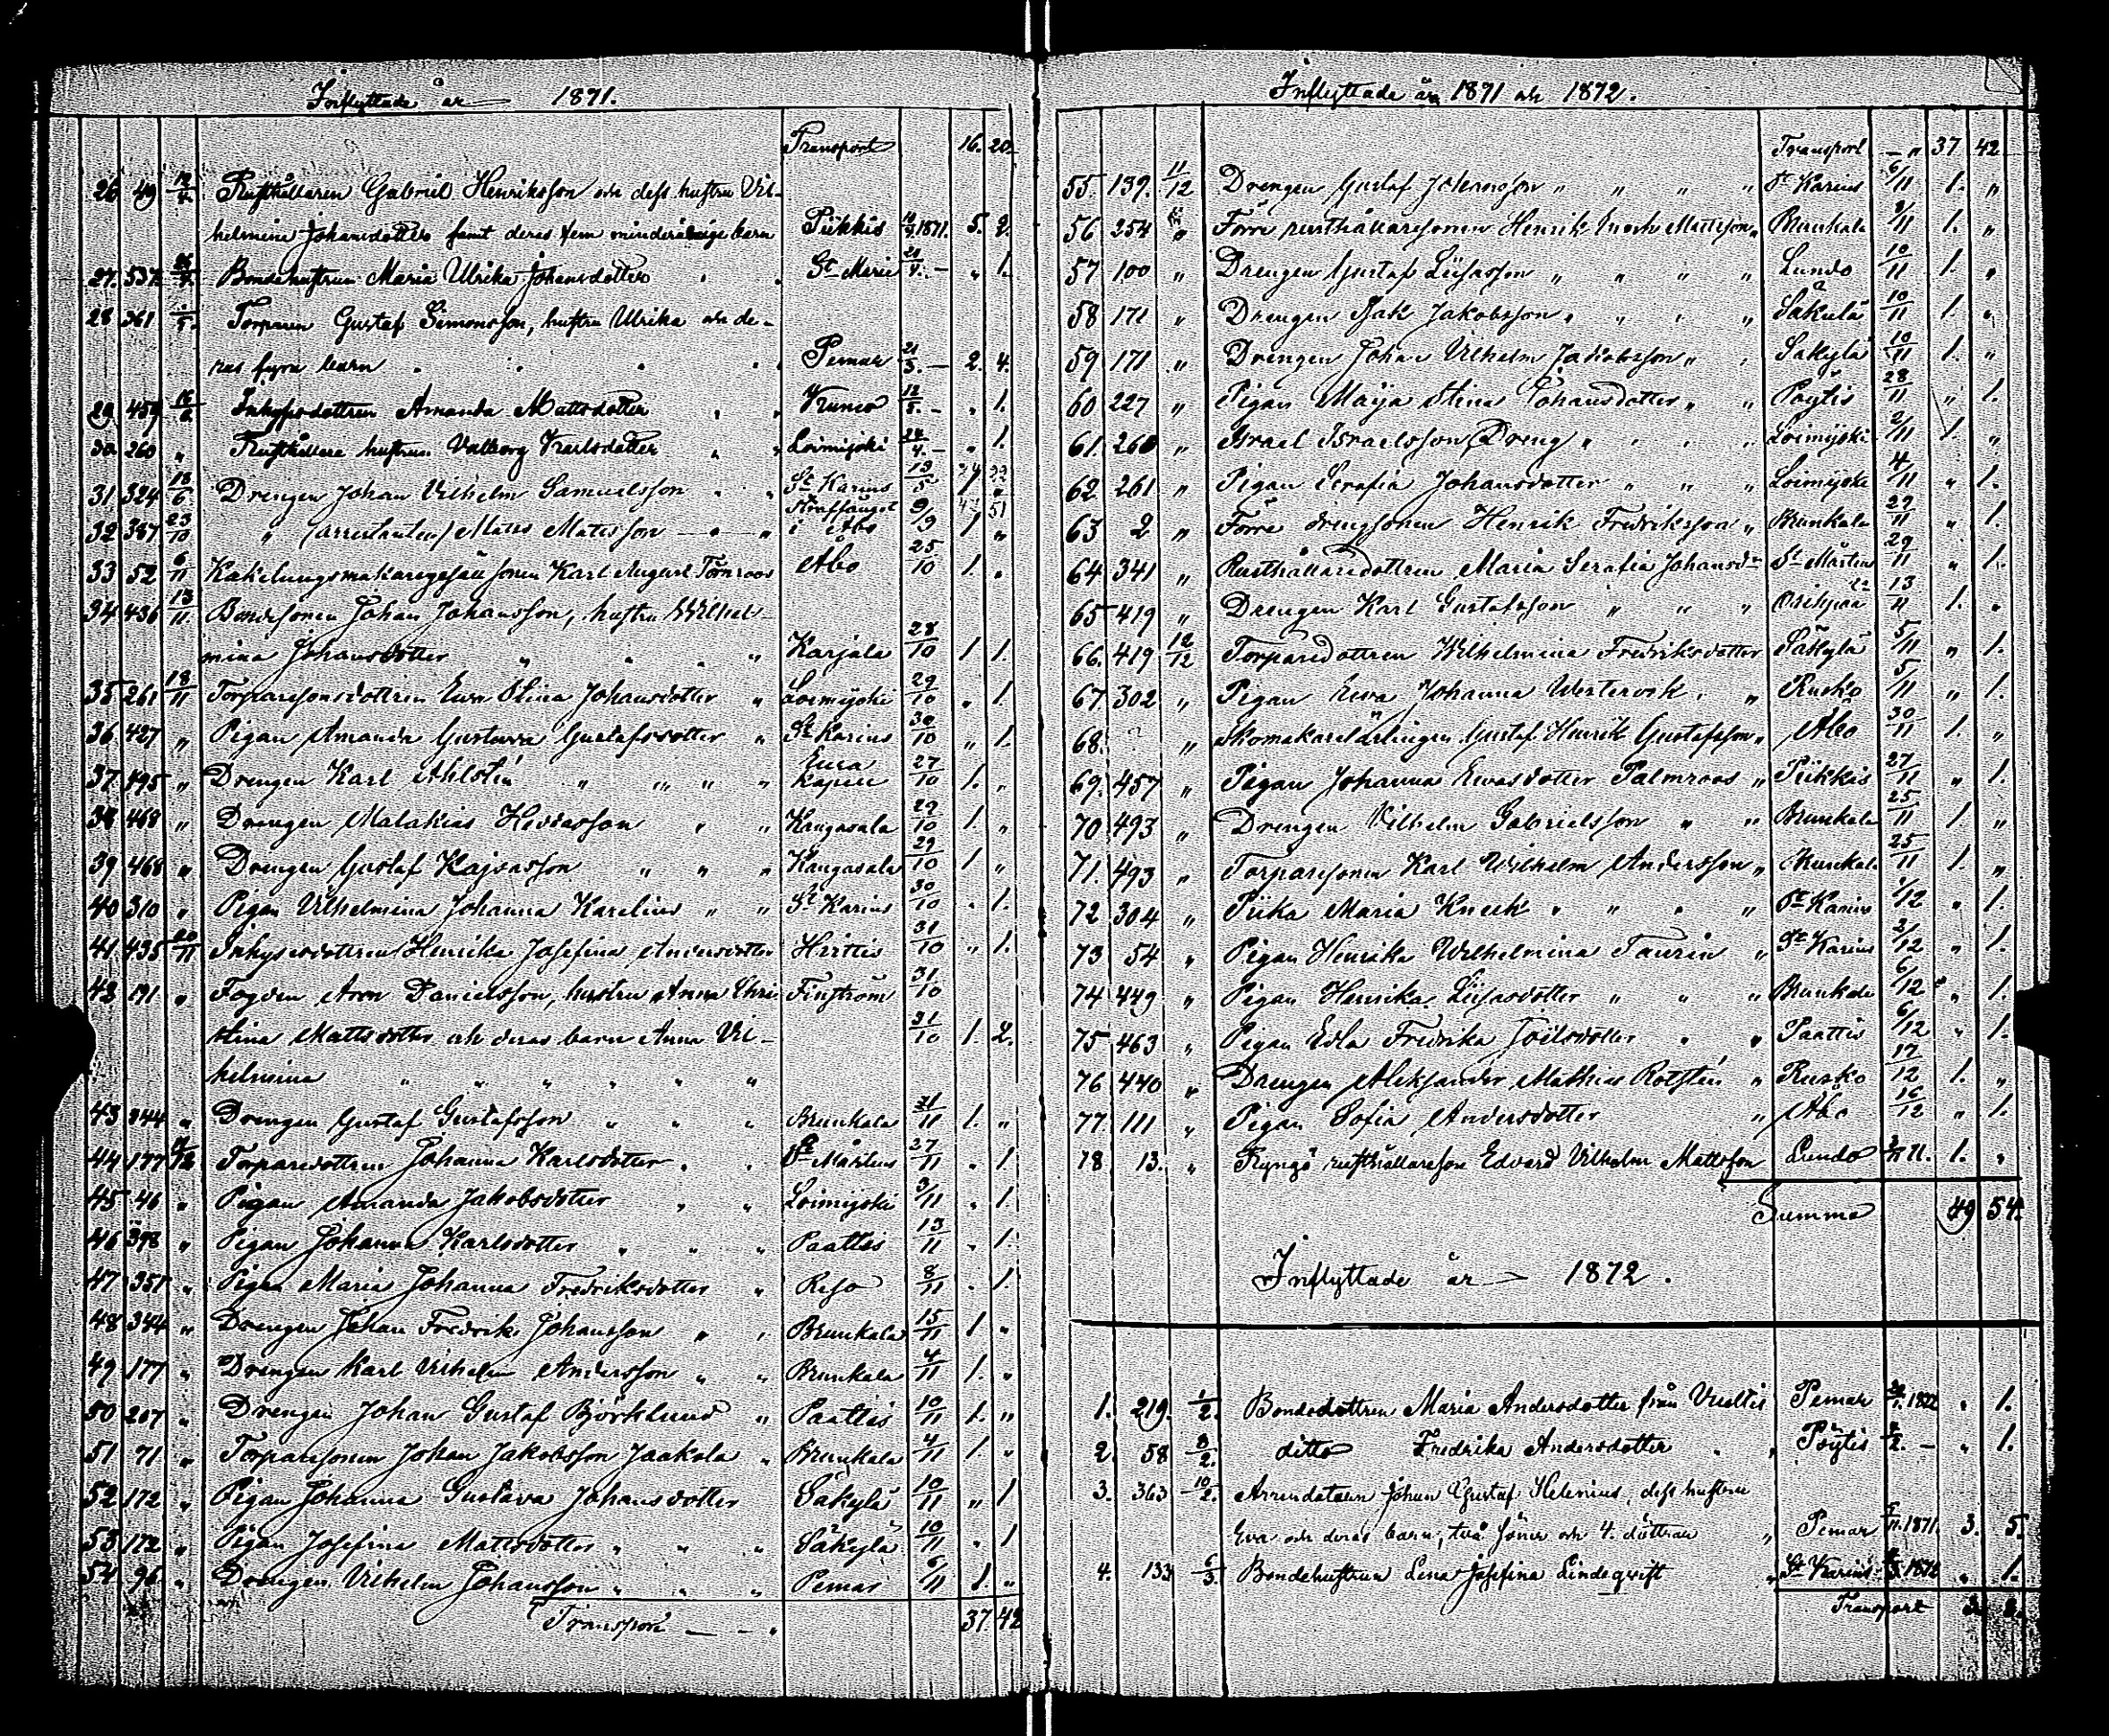 Inflyttade år 1871.
Transport 16. 20.
26 49 12/4. Rusthållaren Gabriel Henriksson och dess hustru Vil-
helmina Johansdotter samt deras fem minderårige barn Pikkis 1871. 5. 2.
27. 537. Bondehustrun Maria Ulrika Johansdotter St Marie 21/4. — „ 1.
28 361 1/5. Torparen Gustaf Simonsson, hustru Ulrika och de-
ras fyra barn Pemar 21/3. — 2. 4.
29 459 15/6 Inhysesdottren Amanda Mattsdotter 12/5. — „ 1.
30 260 „ Rusthållare hustrun Valborg Karlsdotter Loimijoki 24/4. — „ 1.
31 324 18/6 Drengen Johan Vilhelm Samuelsson St Karins 13/5 1 „
32 387 23/10 „ (arrestanten) Matts Matsson Straffånget i Åbo 9/9 1 „
33 52 6/11 Kakelungsmakaregesällsonen Karl August Törnroos Åbo 25/10 1. „
34 436 13/11. Bondesonen Johan Johansson, hustru Wilhel-
mina Johansdotter „ „ Karjala 28/10 1 1.
35 261 18/11 Torparesonsdottren Ewa Stina Johansdotter „ Loimijoki 29/10 „ 1.
36 427 „ Pigan Amanda Gustava Gustafsdotter „ St Karins 30/10 „ 1.
37. 495 „ Drengen Karl Ahlstén „ „ „ Eura kapell 27/10 1. „
38 468 „ Drengen Malakias Hessasson „ „ Kangasala 29/10 1. „
39 468 „ Drengen Gustaf Kajsasson „ „ „ Kangasala 29/10 1 „
40 310 „ Pigan Vilhelmina Johanna Karelius „ „ St Karins 30/10 „ 1.
41. 435 20/11 Inhysesdottren Henrika Josefina Andersdotter Hittis 31/10 „ 1.
42 191 „ Fogden Aron Danielsson, hustru Anna Chri- Finström 31/10
stina Mattsdotter och deras barn Anna Vil- 31/10 1. 2.
helmina „ „ „ „ „ „
43 344 „ Drengen Gustaf Gustafsson „ „ „ Brunkala 21/11 1. „
44 177 Torparedottren Johanna Karlsdotter „ „ St Mårtens 27/11 „ 1.
45 46 „ Pigan Amanda Jakobsdotter „ „ Loimijoki 3/11 „ 1.
46 398 „ Pigan Johanna Karlsdotter „ „ „ Paattis 13/11 „ 1.
47 351 „ Pigan Maria Johanna Fredriksdotter „ Reso 8/11 „ 1.
48 344 „ Drengen Johan Fredrik Johansson „ „ Brunkala 15/11 1 „
49 177 „ Drengen Karl Vilhelm Andersson „ „ Brunkala 4/11 1. „
50 207 „ Drengen Johan Gustaf Björklund „ Paattis 10/11 1. „
51 71. „ Torparesonen Johan Jakobsson Jaakola „ Brunkala 4/11 1. „
52 172 „ Pigan Johanna Gustava Johansdotter Säkylä 10/11 „ 1
53 172 „ Pigan Josefina Mattsdotter „ „ „ Säkylä 10/11 „ 1
54 96 „ Drengen Vilhelm Johansson „ „ „ Pemar 6/11 1. „
Transport — — „ 37. 42
Inflyttade åren 1871 och 1872.
Transport — „ 37 42
55. 139. 11/12 Drengen Gustaf Johansson „ „ „ „ St Karins 6/11 1. „
56 254 Förre rusthållaresonen Henrik Mattsson „ Brunkala 8/11 1. „
57 100 „ Drengen Gustaf Liisasson „ „ „ „ Lundo 10/11 1. „
58 171 „ Drengen Isak Jakobsson „ „ „ „ Säkylä 10/11 1. „
59 171 „ Drengen Johan Vilhelm Jakobsson „ „ Säkylä 10/11 1. „
60 227 „ Pigan Maija Stina Johansdotter „ „ Pöytis 28/11 „ 1.
61. 260 „ Israel Israelsson (Dreng) „ „ „ „ Loimijoki 2/11 1. „
62 261 „ Pigan Serafia Johansdotter „ „ „ Loimijoki 4/11 „ 1.
63 2 „ Förre drengsonen Henrik Fredriksson „ Brunkala 29/11 „ 1.
64 341 „ Rusthållaredottren Maria Serafia Johansdr St Mårtens 29/11 „ 1.
65 419 „ Drengen Karl Gustafsson „ „ „ 13/11 1. „
66. 419 12/12 Torparedottren Wilhelmina Fredriksdotter Säkylä 5/11 „ 1.
67. 302 „ Pigan Ewa Johanna Westervik „ „ Rusko 5/11 „ 1.
68. ? „ Skomakarelärlingen Gustaf Henrik Gustafsson „ Åbo 30/11 1. „
69. 457 „ Pigan Johanna Ewasdotter Palmroos „ Pikkis 27/11 „ 1.
70 493 „ Drengen Vilhelm Gabrielsson „ „ Brunkala 25/11 1 „
71. 493 „ Torparesonen Karl Wilhelm Andersson „ Brunkala 25/11 1. „
72 304 „ Piika Maria Knech „ „ „ „ St Karins 1/12 „ 1.
73 54 „ Pigan Henrika Wilhelmina Taurén „ St Karins 2/12 „ 1.
74 449 „ Pigan Henrika Liisasdotter „ „ „ Brunkala 6/12 „ 1.
75 463 „ Pigan Edla Fredrika Joelsdotter „ „ Paattis 6/12 „ 1.
76 440 „ Drengen Aleksander Mathias Rotstén „ Rusko 17/12 1. „
77. 111 „ Pigan Sofia Andersdotter „ Åbo 16/12 „ 1.
78 13. „ Ryngö rusthållareson Edvard Vilhelm Mattsson Lundo 71. 1. „
Summa 49 54.
Inflyttade år — 1872.
1. 219. 1/2. Bondedottren Maria Andersdotter från Pemar 1872 „ 1.
2. 58 8/2. ditto Fredrika Andersdotter „ „ Pöytis — „ 1.
3. 363 10/2. Arrendatorn Johan Gustaf Helenius, dess hustru
Eva och deras barn, två söner och 4. döttrar „ Pemar 1871. 3. 5.
4. 133 6/3. Bondehustrun Lena Josefina Lindeqvist „ St Karins 1872 „ 1.
Transport 3. 8.